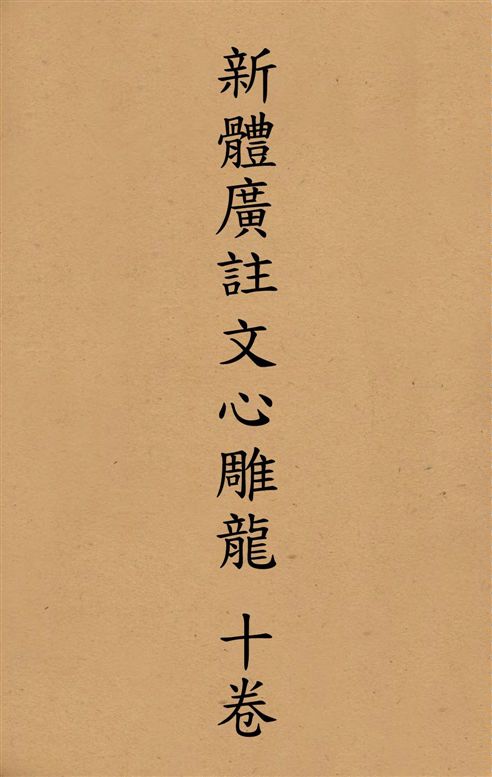 新體廣註文心雕龍 十卷